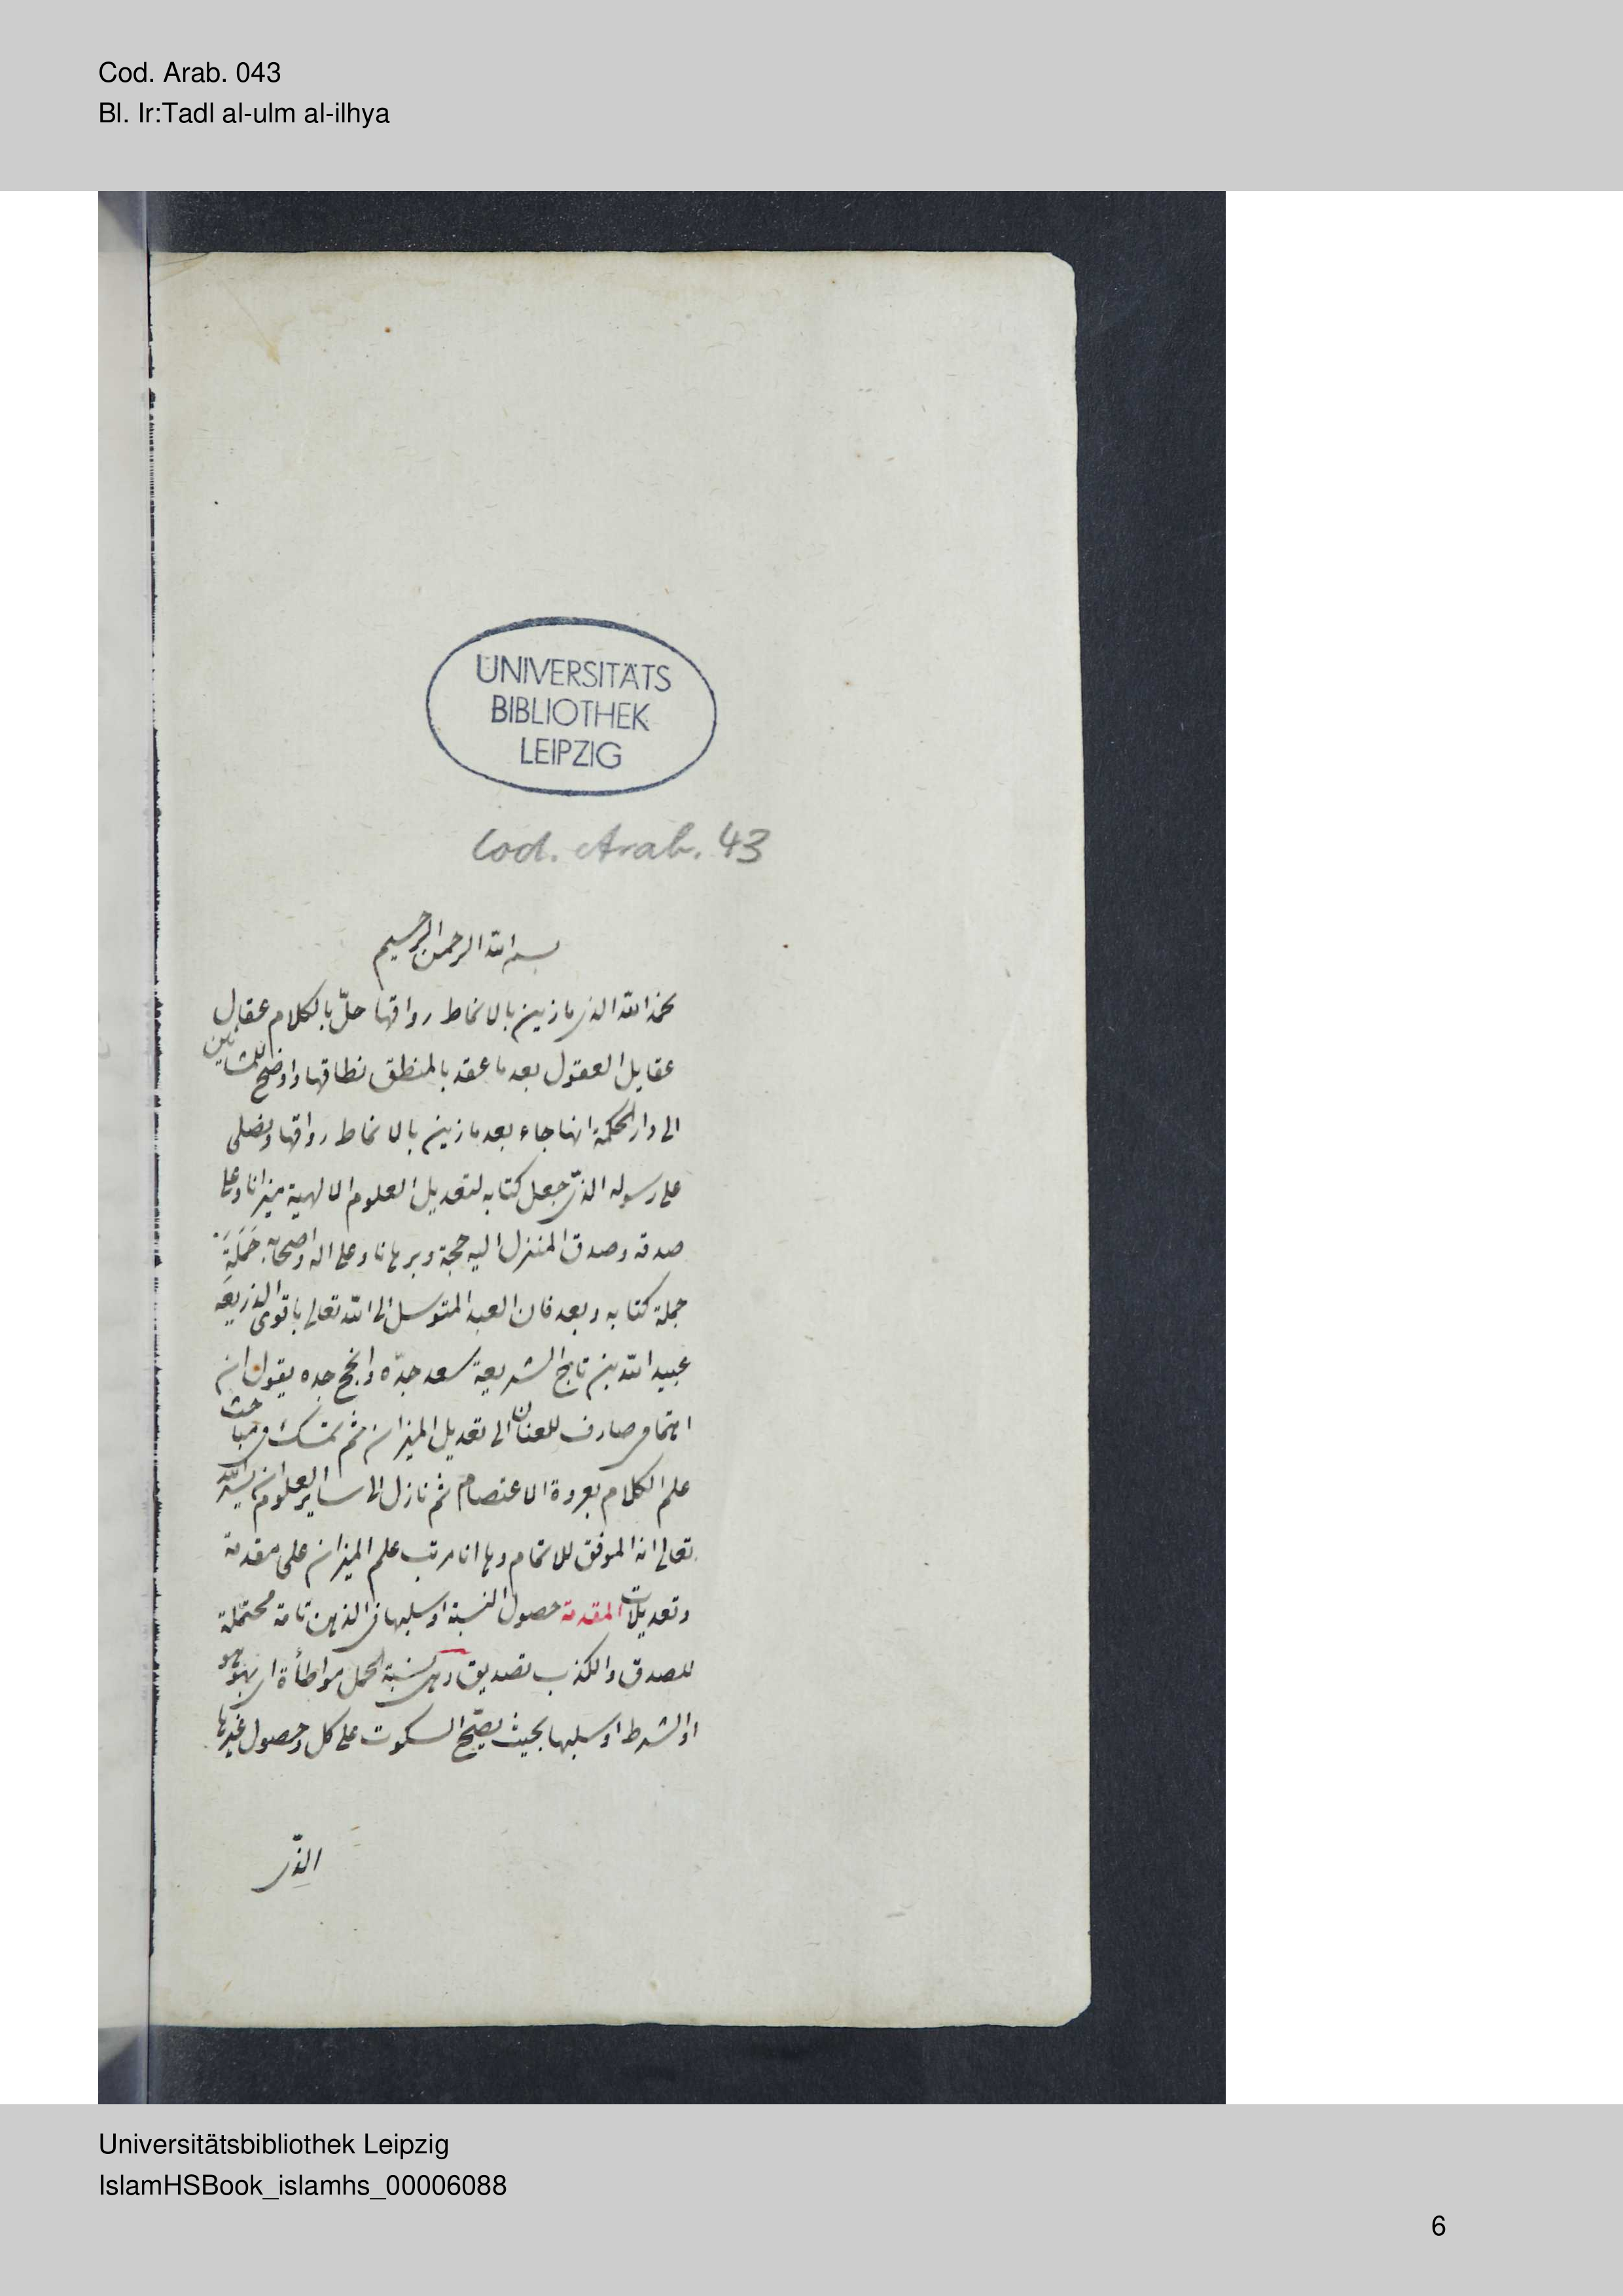 Cod. Arab. 043
Bl. Ir:Tadl al-ulm al-ilhya
UNIVERSITÄTS
BIBLIOTHEK
LEIPZIG
Cod. Arab. 43
بسم الله الرحمن الرحيم
نحمد الله الذى مازين بالانماط رواقها حلّ بالكلام عقال
عقايل العقول بعد ما عقد بالمنطق نطاقها واوضح
الى دار الحكمة انهاجاء بعد ما زين بالانماط رواقها ونصلى
على رسوله الذى جعل كتابه لتعديل العلوم الالهية ميزانا وعلى
صدقه وصدق المنزل اليه حجة وبرهانا وعلى اله واصحابه حَمَلَةِ
جملة كتابه وبعد فان العبد المتوسل الى الله تعالى باقوى الذريعة
عبيد الله بن تاج الشريعة سعد جدّه وانجح جده يقول ان
اهتمامى صارف للعنان الى تعديل الميزان ثم تمسك فى مباحث
علم الكلام بعروة الاعتصام ثم نازل الى ساير العلوم ان يسر الله
تعالى انه الموفق للاتمام وها انا مرتب علم الميزان على مقدمة
وتعديلات المقدمة حصول النسبة او سلبها فى الذهن تامة محتملة
للصدق والكذب تصديق وهى نسبة الحمل مواطأة اى بهو هو
او الشرط او سلبها بحيث يصّح السكوت على كل وحصول غيرها
الذى
Universitätsbibliothek Leipzig
IslamHSBook_islamhs_00006088
6